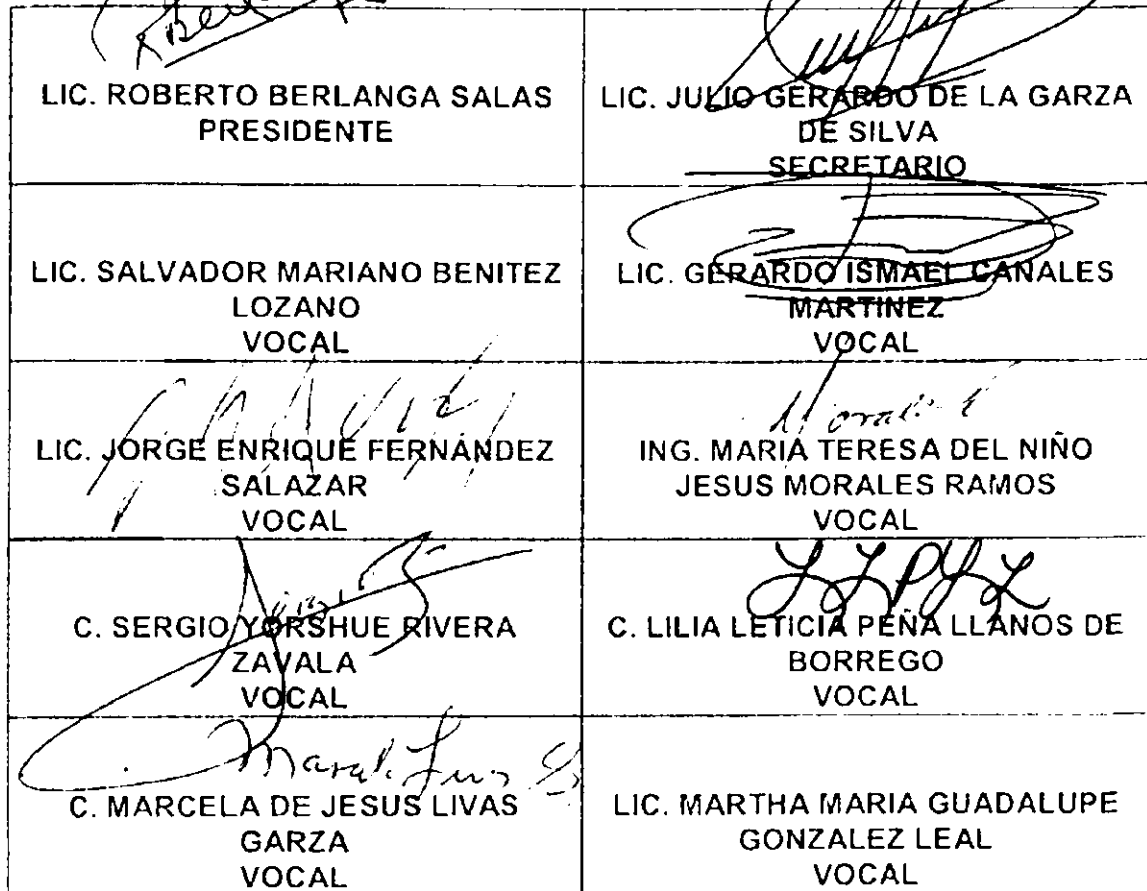 LIC. ROBERTO BERLANGA SALAS
PRESIDENTE
LIC. JULIO GERARDO DE LA GARZA
DE SILVA
SECRETARIO
LIC. SALVADOR MARIANO BENITEZ
LOZANO
VOCAL
LIC. GERARDO ISMAEL CANALES
MARTINEZ
VOCAL
LIC. JORGE ENRIQUE FERNÁNDEZ
SALAZAR
VOCAL
ING. MARIA TERESA DEL NIÑO
JESUS MORALES RAMOS
VOCAL
C. SERGIO YORSHUE RIVERA
ZAVALA
VOCAL
C. LILIA LETICIA PEÑA LLANOS DE
BORREGO
VOCAL
C. MARCELA DE JESUS LIVAS
GARZA
VOCAL
LIC. MARTHA MARIA GUADALUPE
GONZALEZ LEAL
VOCAL